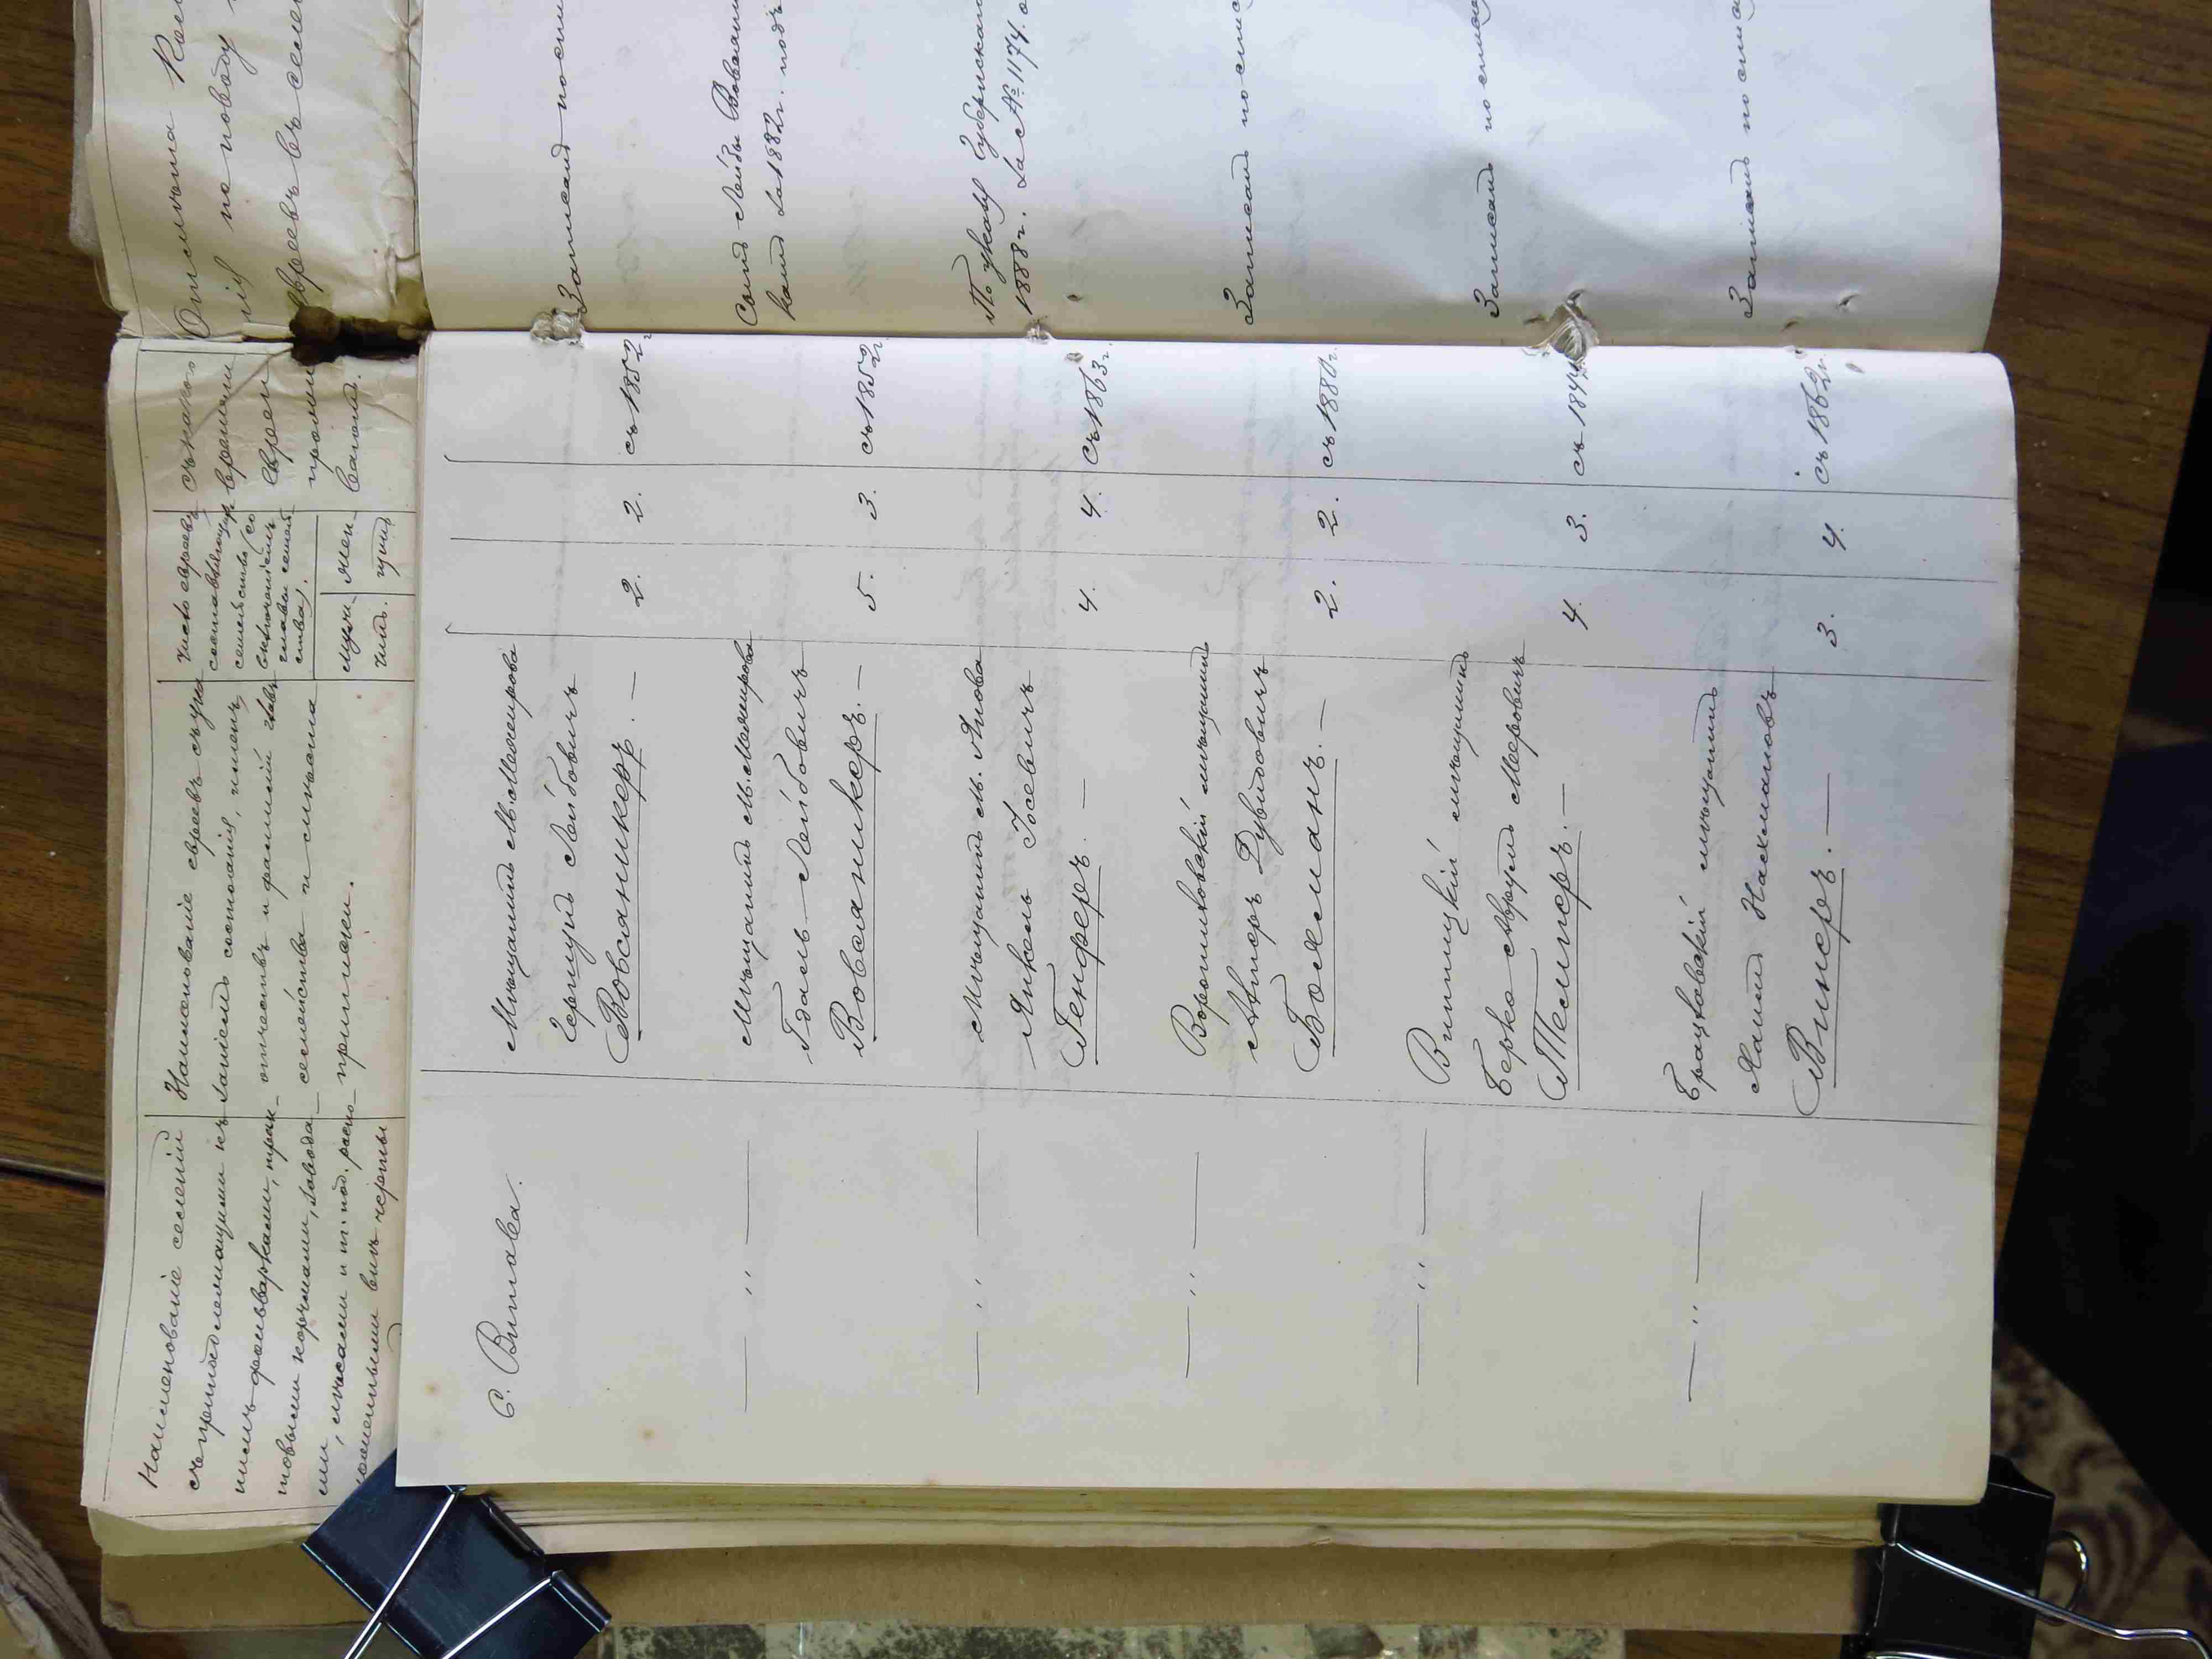 Наименованіе селеній
съ принадлежащими къ
нимъ фольварками, трак-
товыми корчмами, завода-
ми, лѣсами и т. под. распо-
ложенными внѣ черты
Наименованіе евреевъ съ ука
заніемъ состоянія, именъ,
отчествъ и фамилій главъ
семейства и мѣста
приписки.
Число евреевъ
составляющихъ
семейство (со
включеніемъ
главы семей
ства).
мужч-
инъ.
жен-
щинъ
съ какого
времени
евреи
прожи
ваютъ.
по поводу
евреевъ въ селе
С. Витава.
Мѣщанинъ М. Межирова
Гершунъ Лейбовичъ
Вовсаникеръ. —
2.
2.
съ 1852 г.
Записанъ по спи
— " —
Мѣщанинъ М. Межирова
Гдаль-Лейбовичъ
Вовсаникеръ. —
5.
3.
съ 1852 г.
Сынъ Лейбы Вовсани
занъ за 1882 г. подъ
— " —
Мѣщанинъ М. Янова
Янкель Іосевичъ
Генферъ. —
4.
4.
съ 1863 г.
По указу Губернскаго
1888 г. за № 1174. о
— " —
Вороновицкій мѣщанинъ
Авнеръ Дувидовичъ
Боксманъ. —
2.
2.
съ 1880 г.
Записанъ по спис
— " —
Винницкій мѣщанинъ
Берко Аврумъ Меровичъ
Темнеръ. —
4.
3.
съ 1844 г.
Записанъ по списку
— " —
Брацлавскій мѣщанинъ
Хаимъ Нахмановъ
Винеръ. —
3.
4.
съ 1862 г.
Записанъ по списку